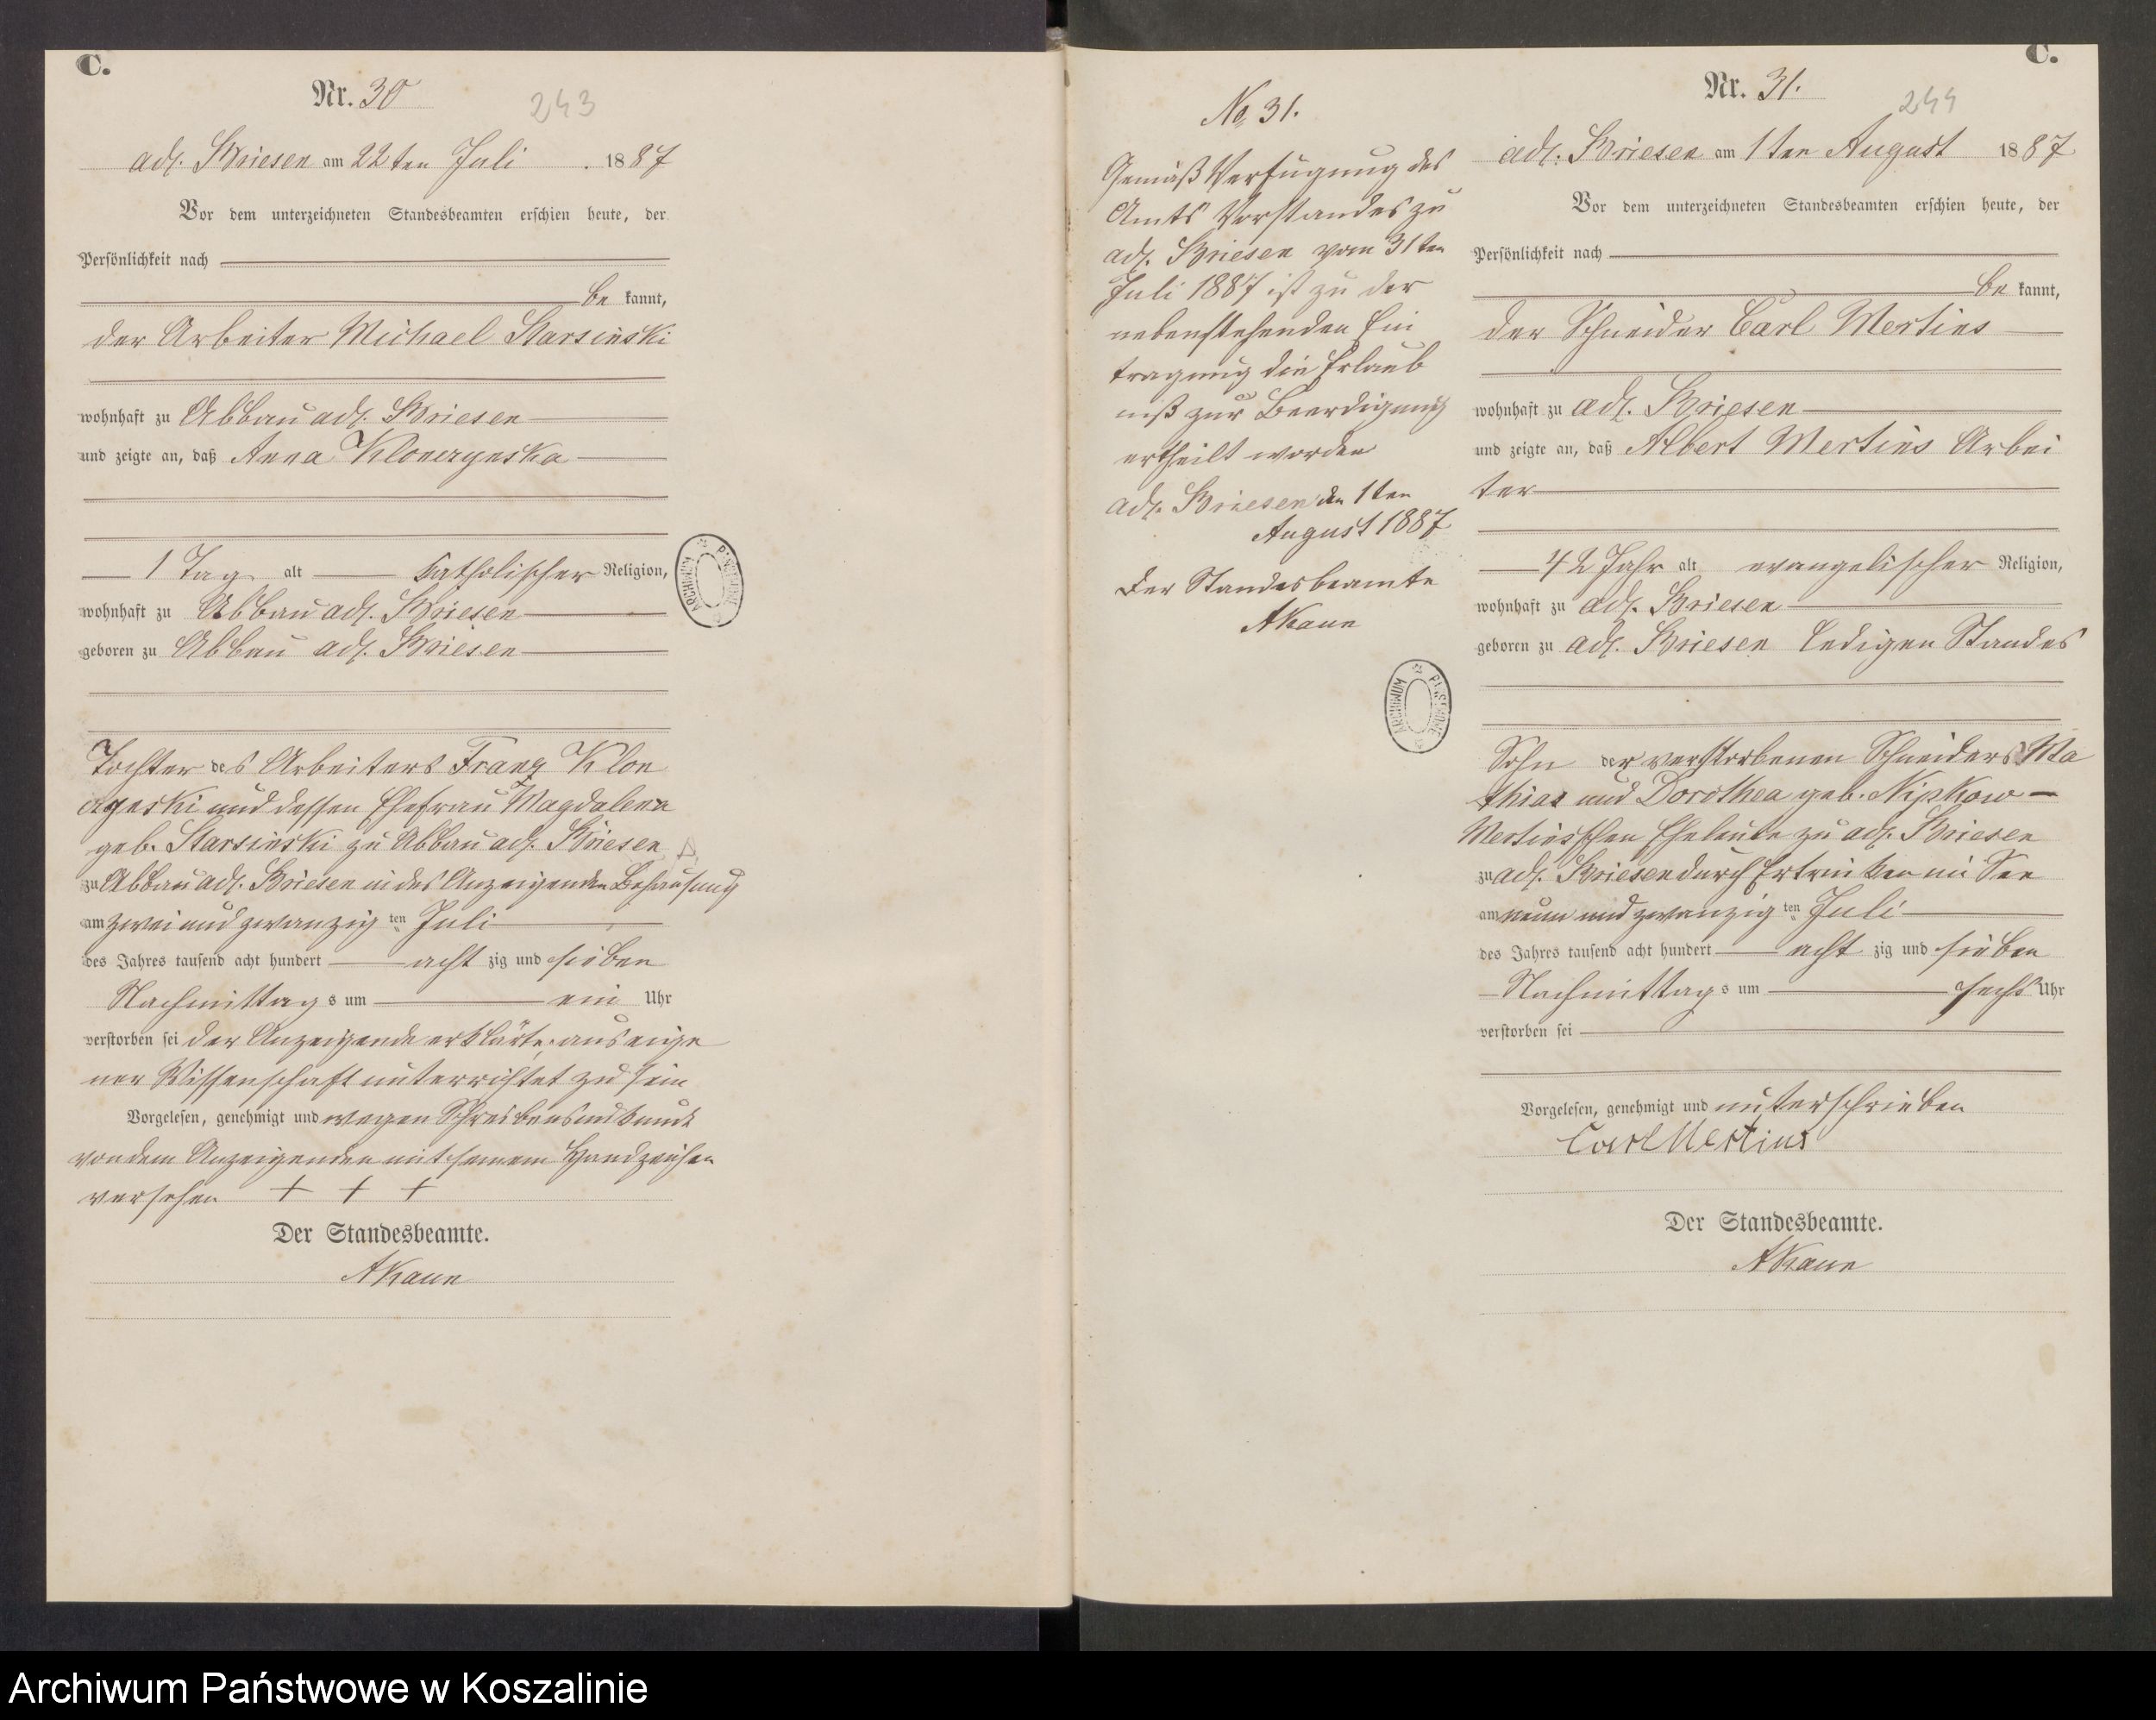 C.
Nr. 30
243
adl. Briesen am 22ten Juli 1887
Vor dem unterzeichneten Standesbeamten erschien heute, der
Persönlichkeit nach
be kannt,
der Arbeiter Michael Starsinski
wohnhaft zu Abbau adl. Briesen
und zeigte an, daß Anna Klonczynska
1 Tag alt katholischer Religion,
wohnhaft zu Abbau adl. Briesen
geboren zu Abbau adl. Briesen
Tochter des Arbeiters Franz Klon
czynski und dessen Ehefrau Magdalena
geb. Starsinski zu Abbau adl. Briesen
zu Abbau adl. Briesen in des Anzeigenden Behausung
am zwei und zwanzig ten Juli
des Jahres tausend acht hundert acht zig und sieben
Nachmittag s um ein Uhr
verstorben sei der Anzeigende erklärte, aus eige
ner Wissenschaft unterrichtet zu sein
Vorgelesen, genehmigt und wegen Schreibensunkunde
von dem Anzeigenden mit seinem Handzeichen
versehen + + +
Der Standesbeamte.
AKaun
ARCHIWUM PAŃSTWOWE
No. 31.
Gemäß Verfügung des
Amts Vorstandes zu
adl. Briesen vom 31ten
Juli 1887 ist zu der
nebenstehenden Ein
tragung die Erlaub
niß zur Beerdigung
ertheilt worden
adl. Briesen den 1ten
August 1887
Der Standesbeamte
AKaun
ARCHIWUM PAŃSTWOWE
C.
Nr. 31.
244
adl. Briesen am 1ten August 1887
Vor dem unterzeichneten Standesbeamten erschien heute, der
Persönlichkeit nach
be kannt,
der Schneider Carl Mertins
wohnhaft zu adl. Briesen
und zeigte an, daß Albert Mertins Arbei
ter
42 Jahr alt evangelischer Religion,
wohnhaft zu adl. Briesen
geboren zu adl. Briesen ledigen Standes
Sohn der verstorbenen Schneiders Ma
thias und Dorothea geb. Nipkow
Mertinsschen Eheleute zu adl. Briesen
zu adl. Briesen durch Ertrinken im See
am neun und zwanzig ten Juli
des Jahres tausend acht hundert acht zig und sieben
Nachmittag s um sechs Uhr
verstorben sei
Vorgelesen, genehmigt und unterschrieben
Carl Mertins
Der Standesbeamte.
AKaun
Archiwum Państwowe w Koszalinie